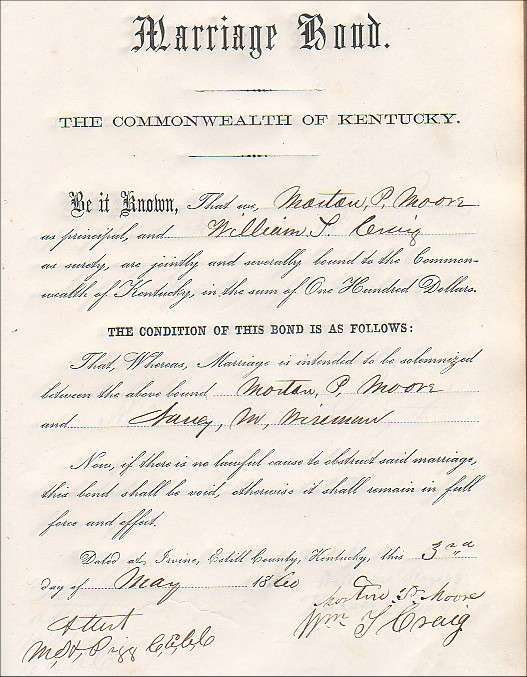 Marriage Bond.
THE COMMONWEALTH OF KENTUCKY.
Be it Known, That we, Morton, P, Moore
as principal, and William S. Craig
as surety, are jointly and severally bound to the Common-
wealth of Kentucky, in the sum of One Hundred Dollars.
THE CONDITION OF THIS BOND IS AS FOLLOWS:
That, Whereas, Marriage is intended to be solemnized
between the above bound Morton, P, Moore
and Nancy, M, Wireman
Now, if there is no lawful cause to obstruct said marriage,
this bond shall be void, otherwise it shall remain in full
force and effect.
Dated at Irvine, Estill County, Kentucky, this 3rd
day of May 1860
Morton P Moore
Attest Wm S Craig